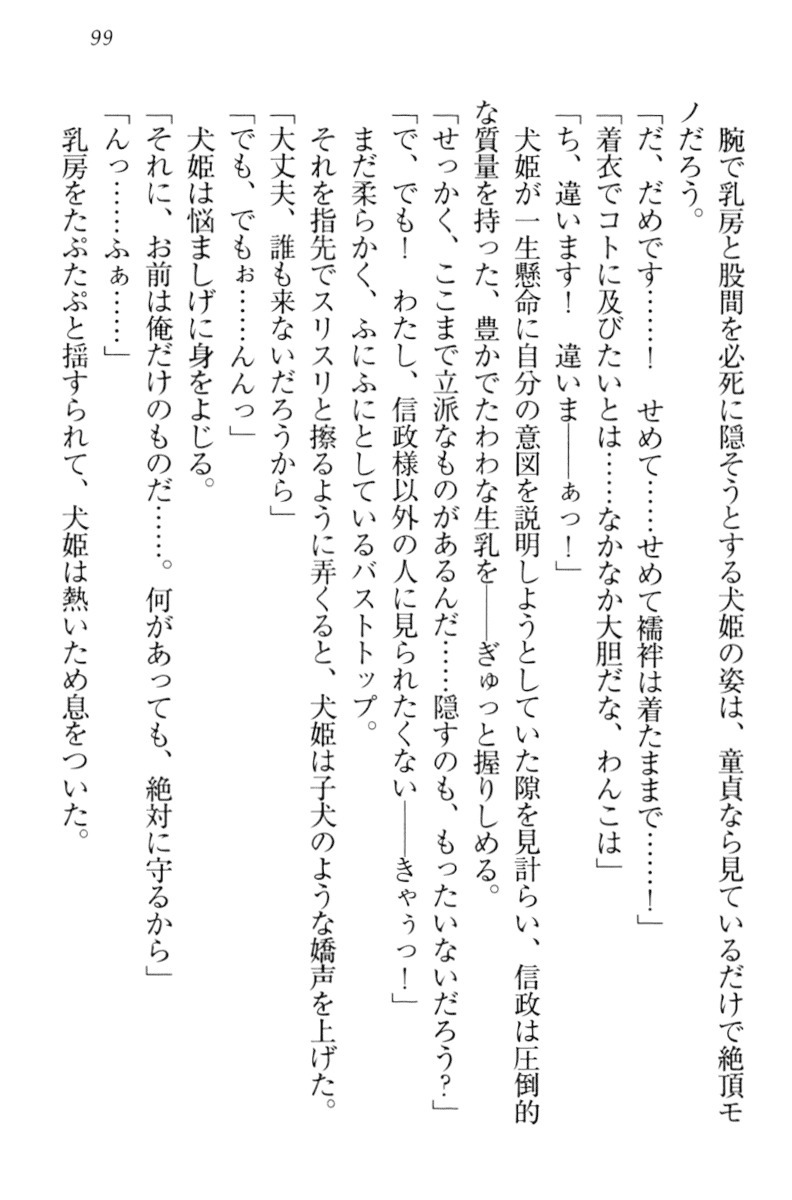 99
腕で乳房と股間を必死に隠そうとする犬姫の姿は、童貞なら見ているだけで絶頂モ
ノだろう。
「だ、だめです……！　せめて……せめて襦袢は着たままで……！」
「着衣でコトに及びたいとは……なかなか大胆だな、わんこは」
「ち、違います！　違いま――ぁっ！」
犬姫が一生懸命に自分の意図を説明しようとしていた隙を見計らい、信政は圧倒的
な質量を持った、豊かでたわわな生乳を――ぎゅっと握りしめる。
「せっかく、ここまで立派なものがあるんだ……隠すのも、もったいないだろう？」
「で、でも！　わたし、信政様以外の人に見られたくない――きゃぅっ！」
まだ柔らかく、ふにふにとしているバストトップ。
それを指先でスリスリと擦るように弄くると、犬姫は子犬のような嬌声を上げた。
「大丈夫、誰も来ないだろうから」
「でも、でもぉ……んんっ」
犬姫は悩ましげに身をよじる。
「それに、お前は俺だけのものだ……。何があっても、絶対に守るから」
「んっ……ふぁ……」
乳房をたぷたぷと揺すられて、犬姫は熱いため息をついた。